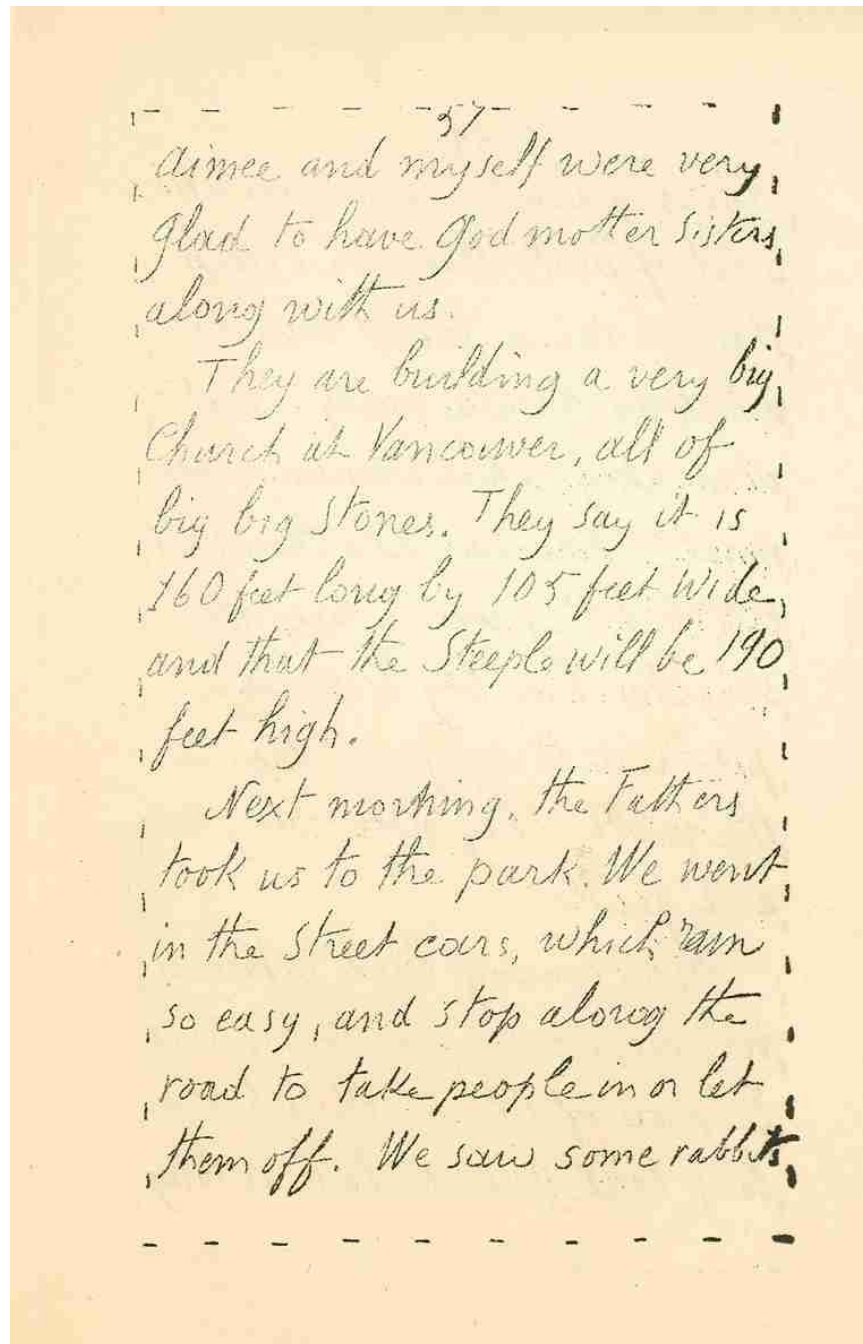 57
Aimee and myself were very
glad to have God motter sisters
along with us.
They are building a very big
Church at Vancouver, all of
big big stones. They say it is
160 feet long by 105 feet wide,
and that the Steeple will be 190
feet high.
Next morning, the Fathers
took us to the park. We went
in the Street cars, which ran
so easy, and stop along the
road to take people in or let
them off. We saw some rabbits